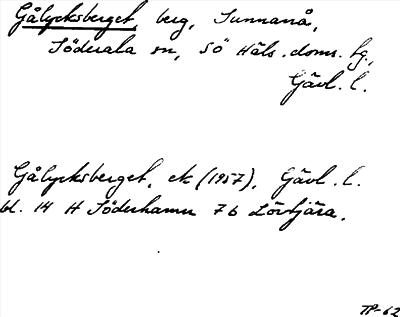 Gålycksberget, berg, Sunnanå,
Söderala sn, SÖ Häls. doms. tg,
Gävl. l.
Gålycksberget, ek (1957), Gävl. l.
bl. 14 H Söderhamn 7 b Lövtjära.
TP-62